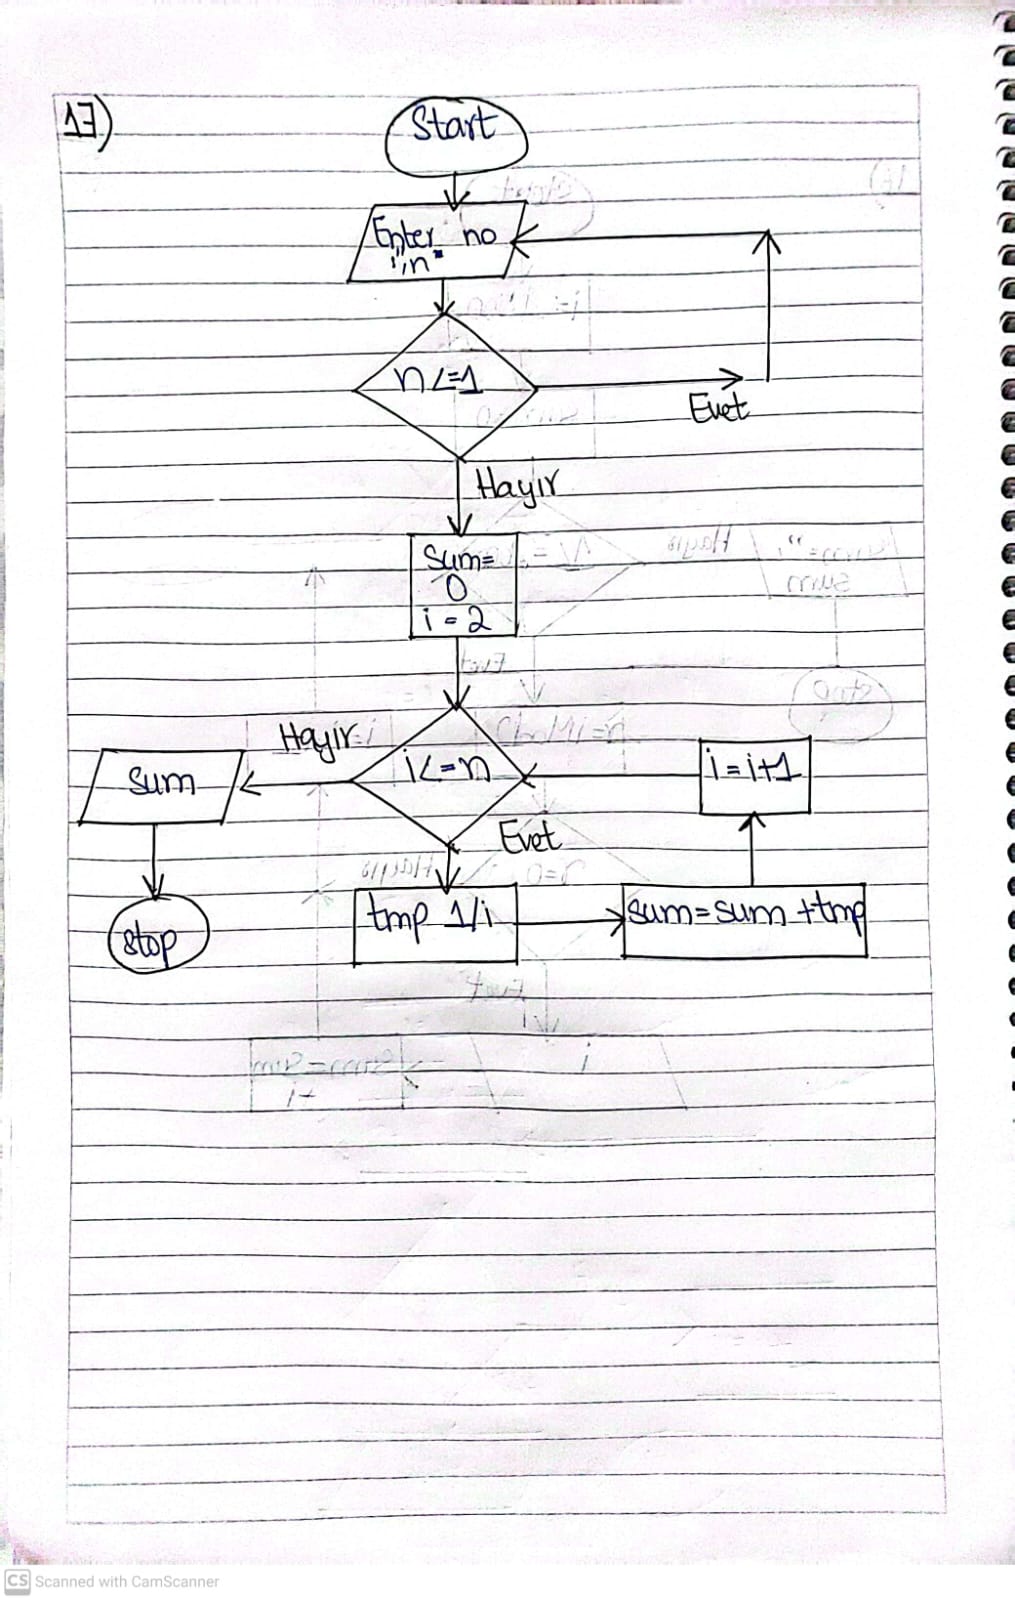 17)
Start
Enter no
"n"
n<=1
Evet
Hayır
Sum=
0
i=2
Hayır
i<=n
i=i+1
sum
Evet
tmp 1/i
sum=sum+tmp
stop
CS Scanned with CamScanner